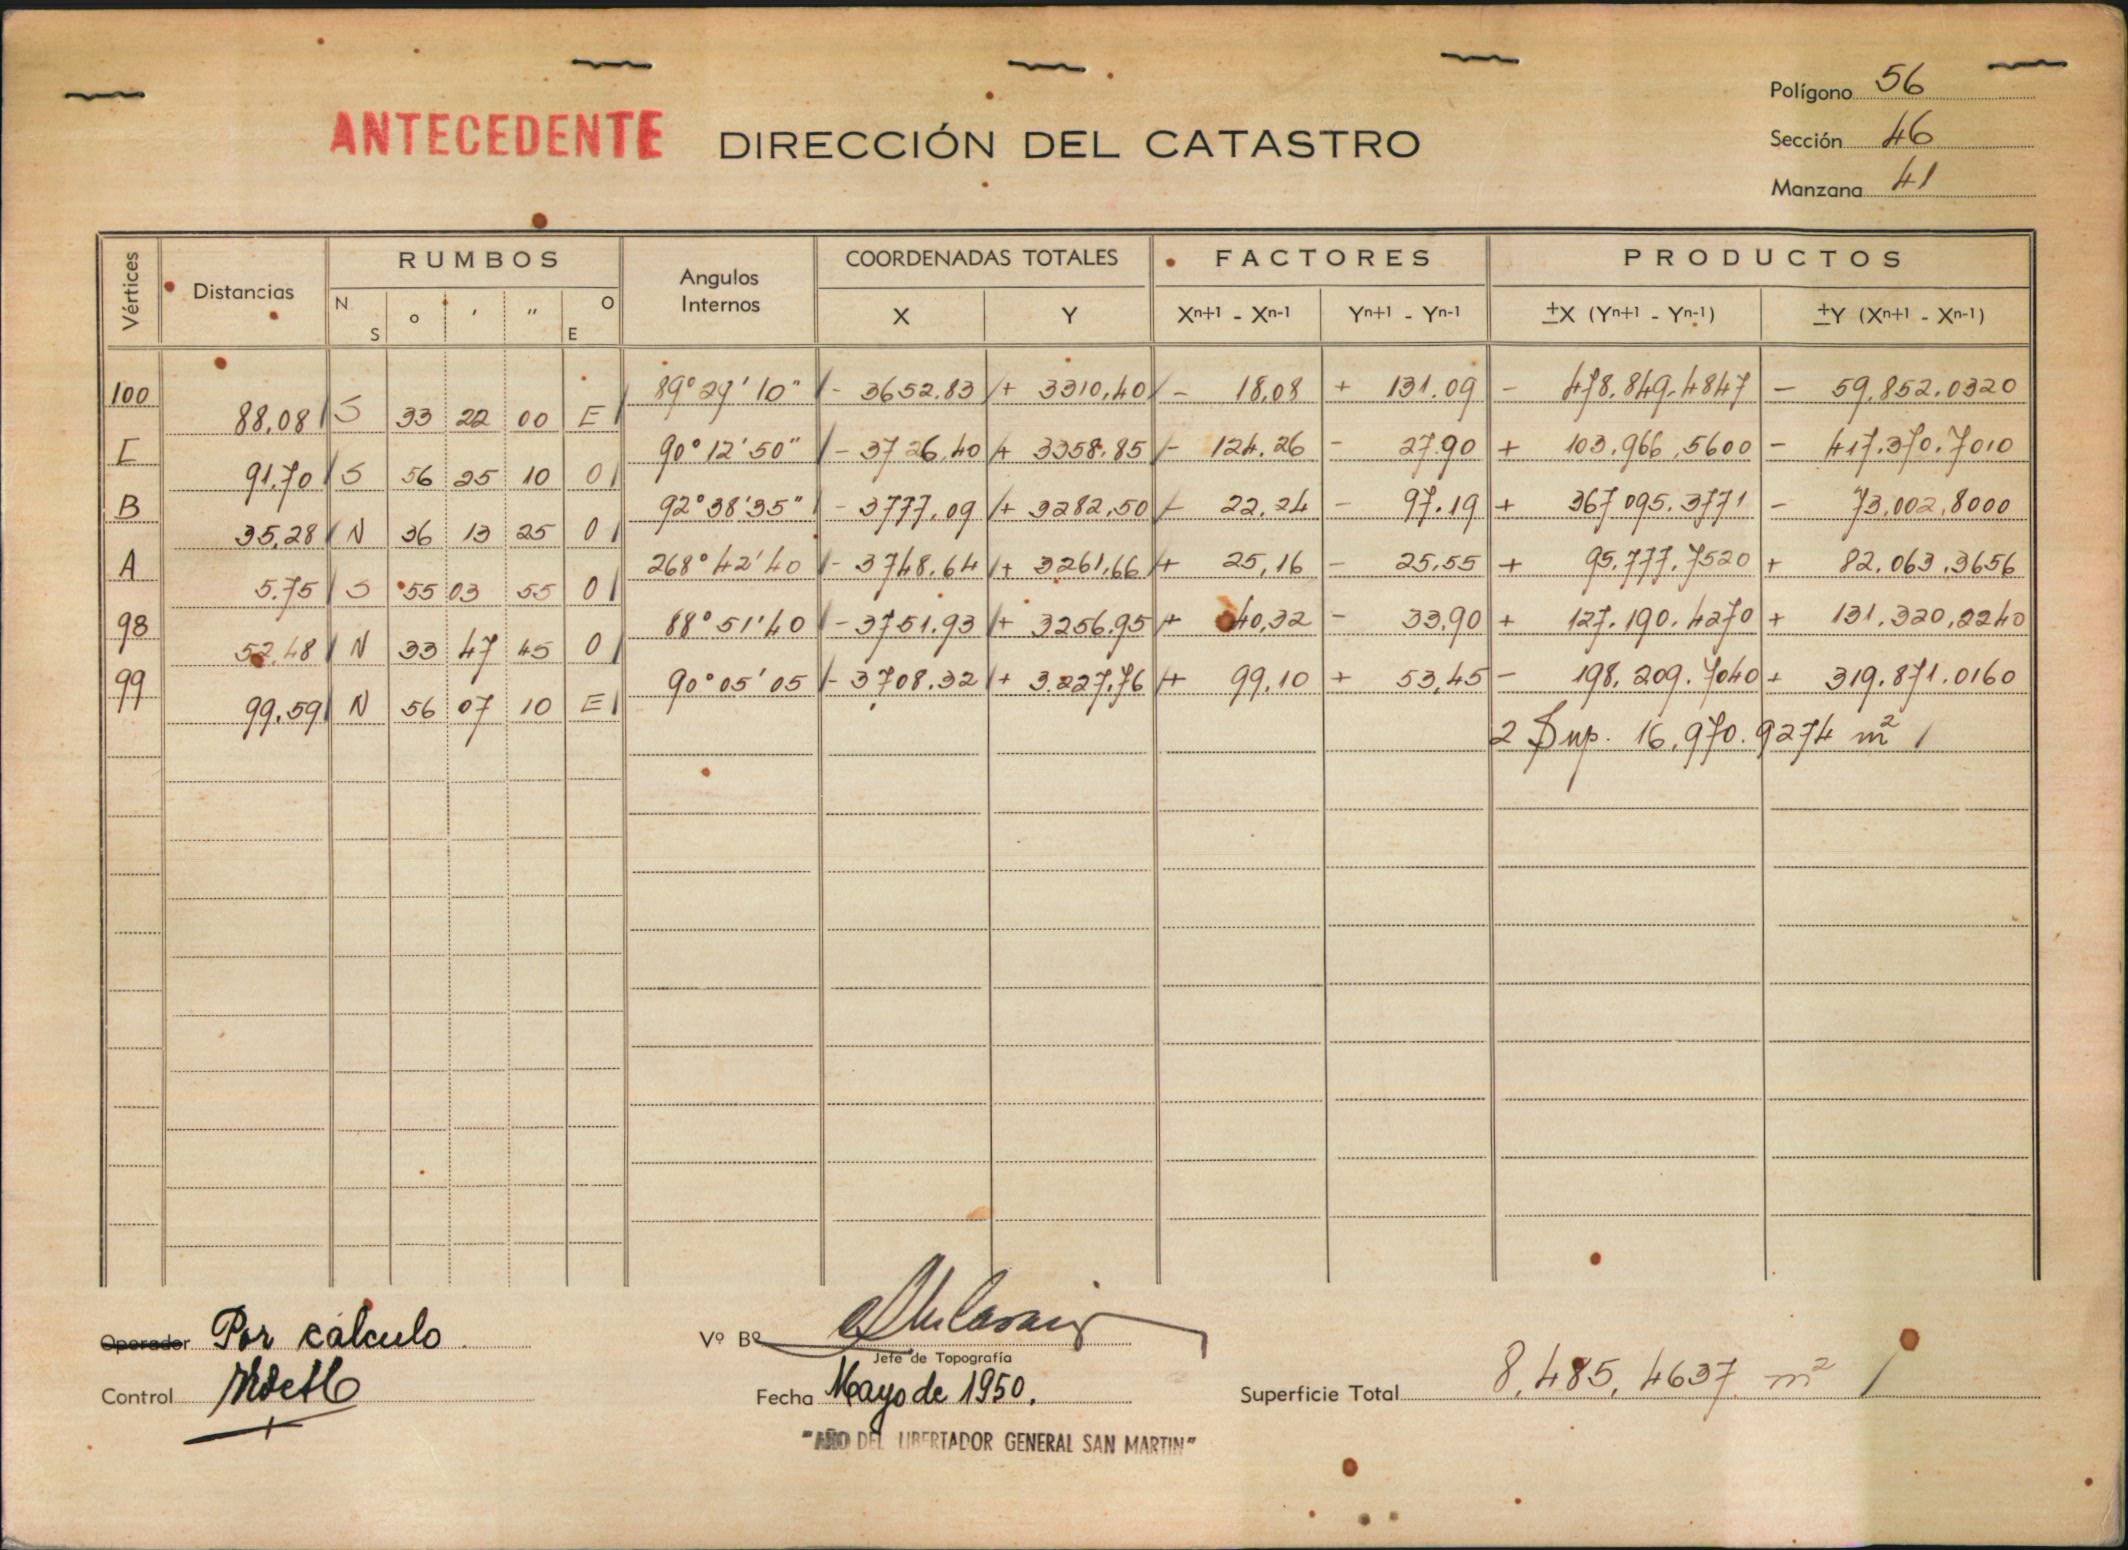 Polígono 56
ANTECEDENTE DIRECCIÓN DEL CATASTRO
Sección 46
Manzana 41
Vértices Distancias RUMBOS Angulos Internos COORDENADAS TOTALES FACTORES PRODUCTOS
N S o ' " O E X Y Xn+1 - Xn-1 Yn+1 - Yn-1 ±X (Yn+1 - Yn-1) ±Y (Xn+1 - Xn-1)
100 89° 29' 10" - 3652.83 + 3310,40 - 18,08 + 131.09 - 478.849.4847 - 59.852.0320
88,08 S 33 22 00 E
C 90° 12' 50" - 3726,40 + 3358.85 - 124.26 - 27.90 + 103.966,5600 - 417.370.7010
91.70 S 56 25 10 O
B 92° 38' 35" - 3777,09 + 3282,50 - 22,24 - 97.19 + 367 095.3771 - 73.002,8000
35,28 N 36 13 25 O
A 268° 42' 40 - 3748.64 + 3261,66 + 25,16 - 25.55 + 95.777.7520 + 82.063.3656
5.75 S 55 03 55 O
98 88° 51' 40 - 3751.93 + 3256.95 + 40,32 - 33.90 + 127.190.4270 + 131.320,2240
52.48 N 33 47 45 O
99 90° 05' 05 - 3708.32 + 3.227.76 + 99.10 + 53,45 - 198.209.7040 + 319.871.0160
99.59 N 56 07 10 E
2 Sup. 16,970.9274 m²
Operador Por cálculo
Vº Bº
Jefe de Topografía
Control
Fecha Mayo de 1950.
Superficie Total 8,485,4637 m²
"AÑO DEL LIBERTADOR GENERAL SAN MARTIN"